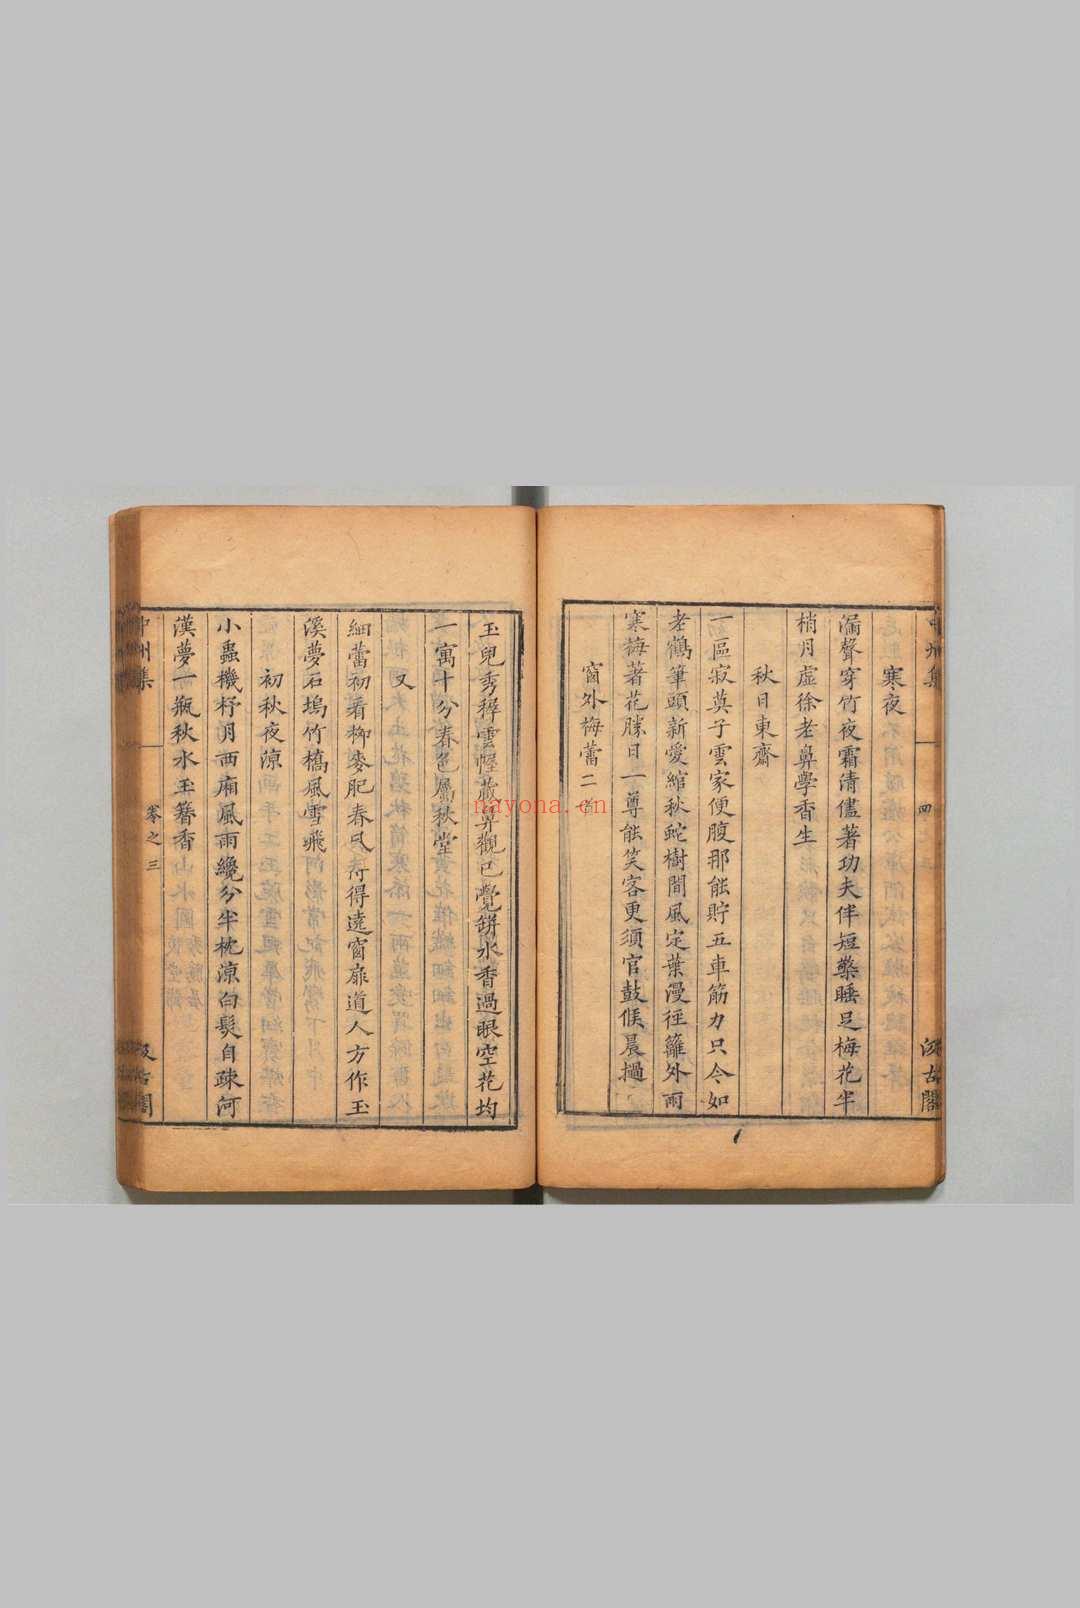 中州集
四
汲古閣
寒夜
漏聲穿竹夜霜清儘著功夫伴短檠睡足梅花半
梢月虛徐老鼻學香生
秋日東齋
一區寂莫子雲家便腹那能貯五車筋力只今如
老鶴筆頭新愛綰秋蛇樹間風定葉漫徑籬外雨
寒梅著花勝日一尊能笑客更須官鼓候晨撾
窗外梅蕾二首
玉兒秀稺雲幄藏鼻觀已覺餅水香過眼空花均
一寓十分春色屬秋堂
又
細蕾初看柳麥肥春風待得遶窗扉道人方作玉
溪夢石塢竹橋風雪飛
初秋夜涼
小蟲機杼月西廂風雨纔分半枕涼白髮自疎河
漢夢一瓶秋水玉簪香
中州集
卷之三
汲古閣
nayona.cn